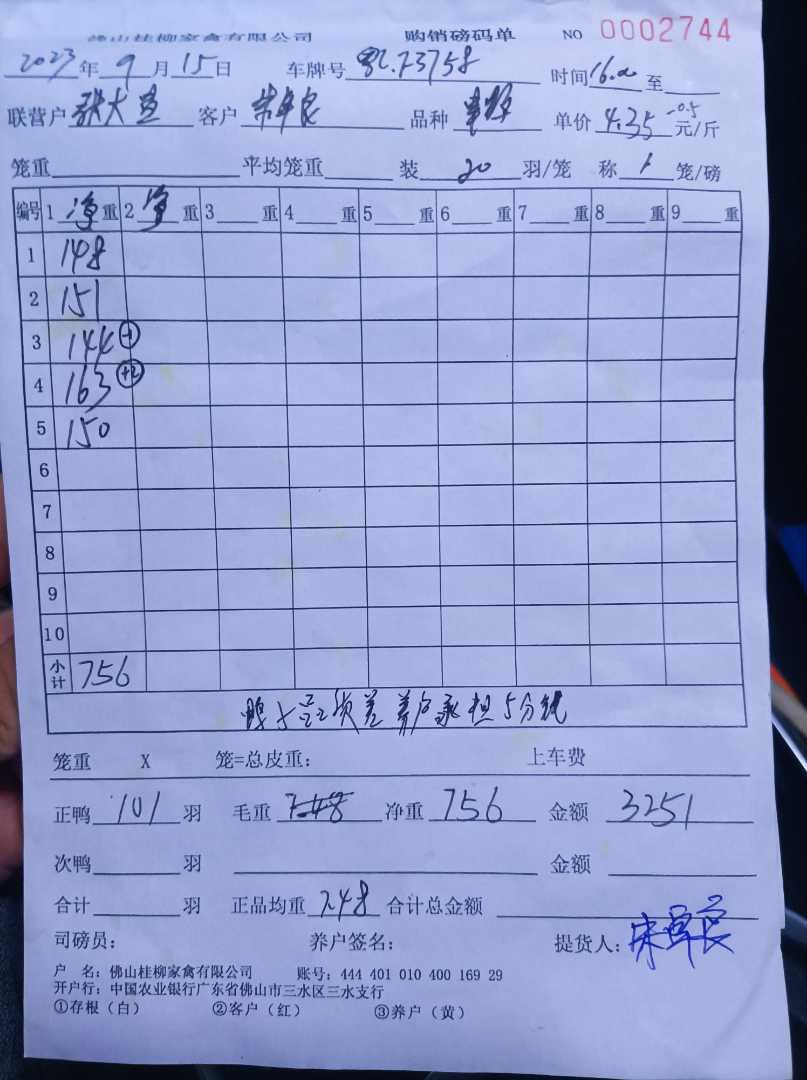 佛山桂柳家禽有限公司 购销磅码单 NO 0002744
2023年9月15日 车牌号 73758 时间16.00至
联营户 张大 客户 品种 单价 4.35 -0.5 元/斤
笼重 平均笼重 装 20 羽/笼 称 1 笼/磅
编号 1 净 重 2 净 重 3 重 4 重 5 重 6 重 7 重 8 重 9 重
1 148
2 151
3 144 -1
4 163 +2
5 150
6
7
8
9
10
小计 756
差养户承担5分钱
笼重 X 笼=总皮重: 上车费
正鸭 101 羽 毛重 748 净重 756 金额 3251
次鸭 羽 金额
合计 羽 正品均重 7.48 合计总金额
司磅员: 养户签名: 提货人:
户 名: 佛山桂柳家禽有限公司 账号: 444 401 010 400 169 29
开户行: 中国农业银行广东省佛山市三水区三水支行
①存根(白) ②客户(红) ③养户(黄)